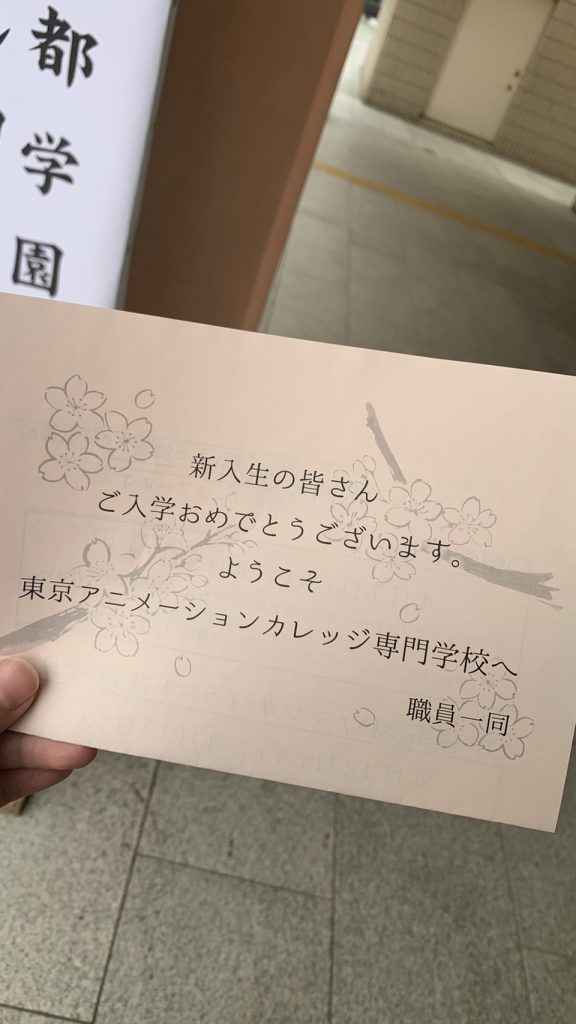 都
学
園
新入生の皆さん
ご入学おめでとうございます。
ようこそ
東京アニメーションカレッジ専門学校へ
職員一同